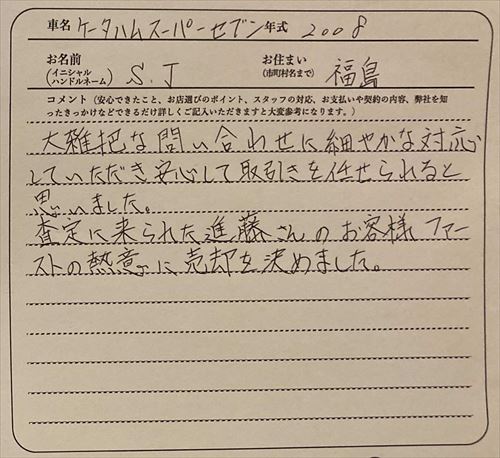 車名 ケータハムスーパーセブン 年式 2008
お名前 (イニシャル ハンドルネーム) S.J お住まい (市町村名まで) 福島
コメント（安心できたこと、お店選びのポイント、スタッフの対応、お支払いや契約の内容、弊社を知
ったきっかけなどできるだけ詳しくご記入いただきますと大変参考になります。）
大雑把な問い合わせに細やかな対応
していただき安心して取引きを任せられると
思いました。
査定に来られた進藤さんのお客様ファー
ストの熱意に売却を決めました。